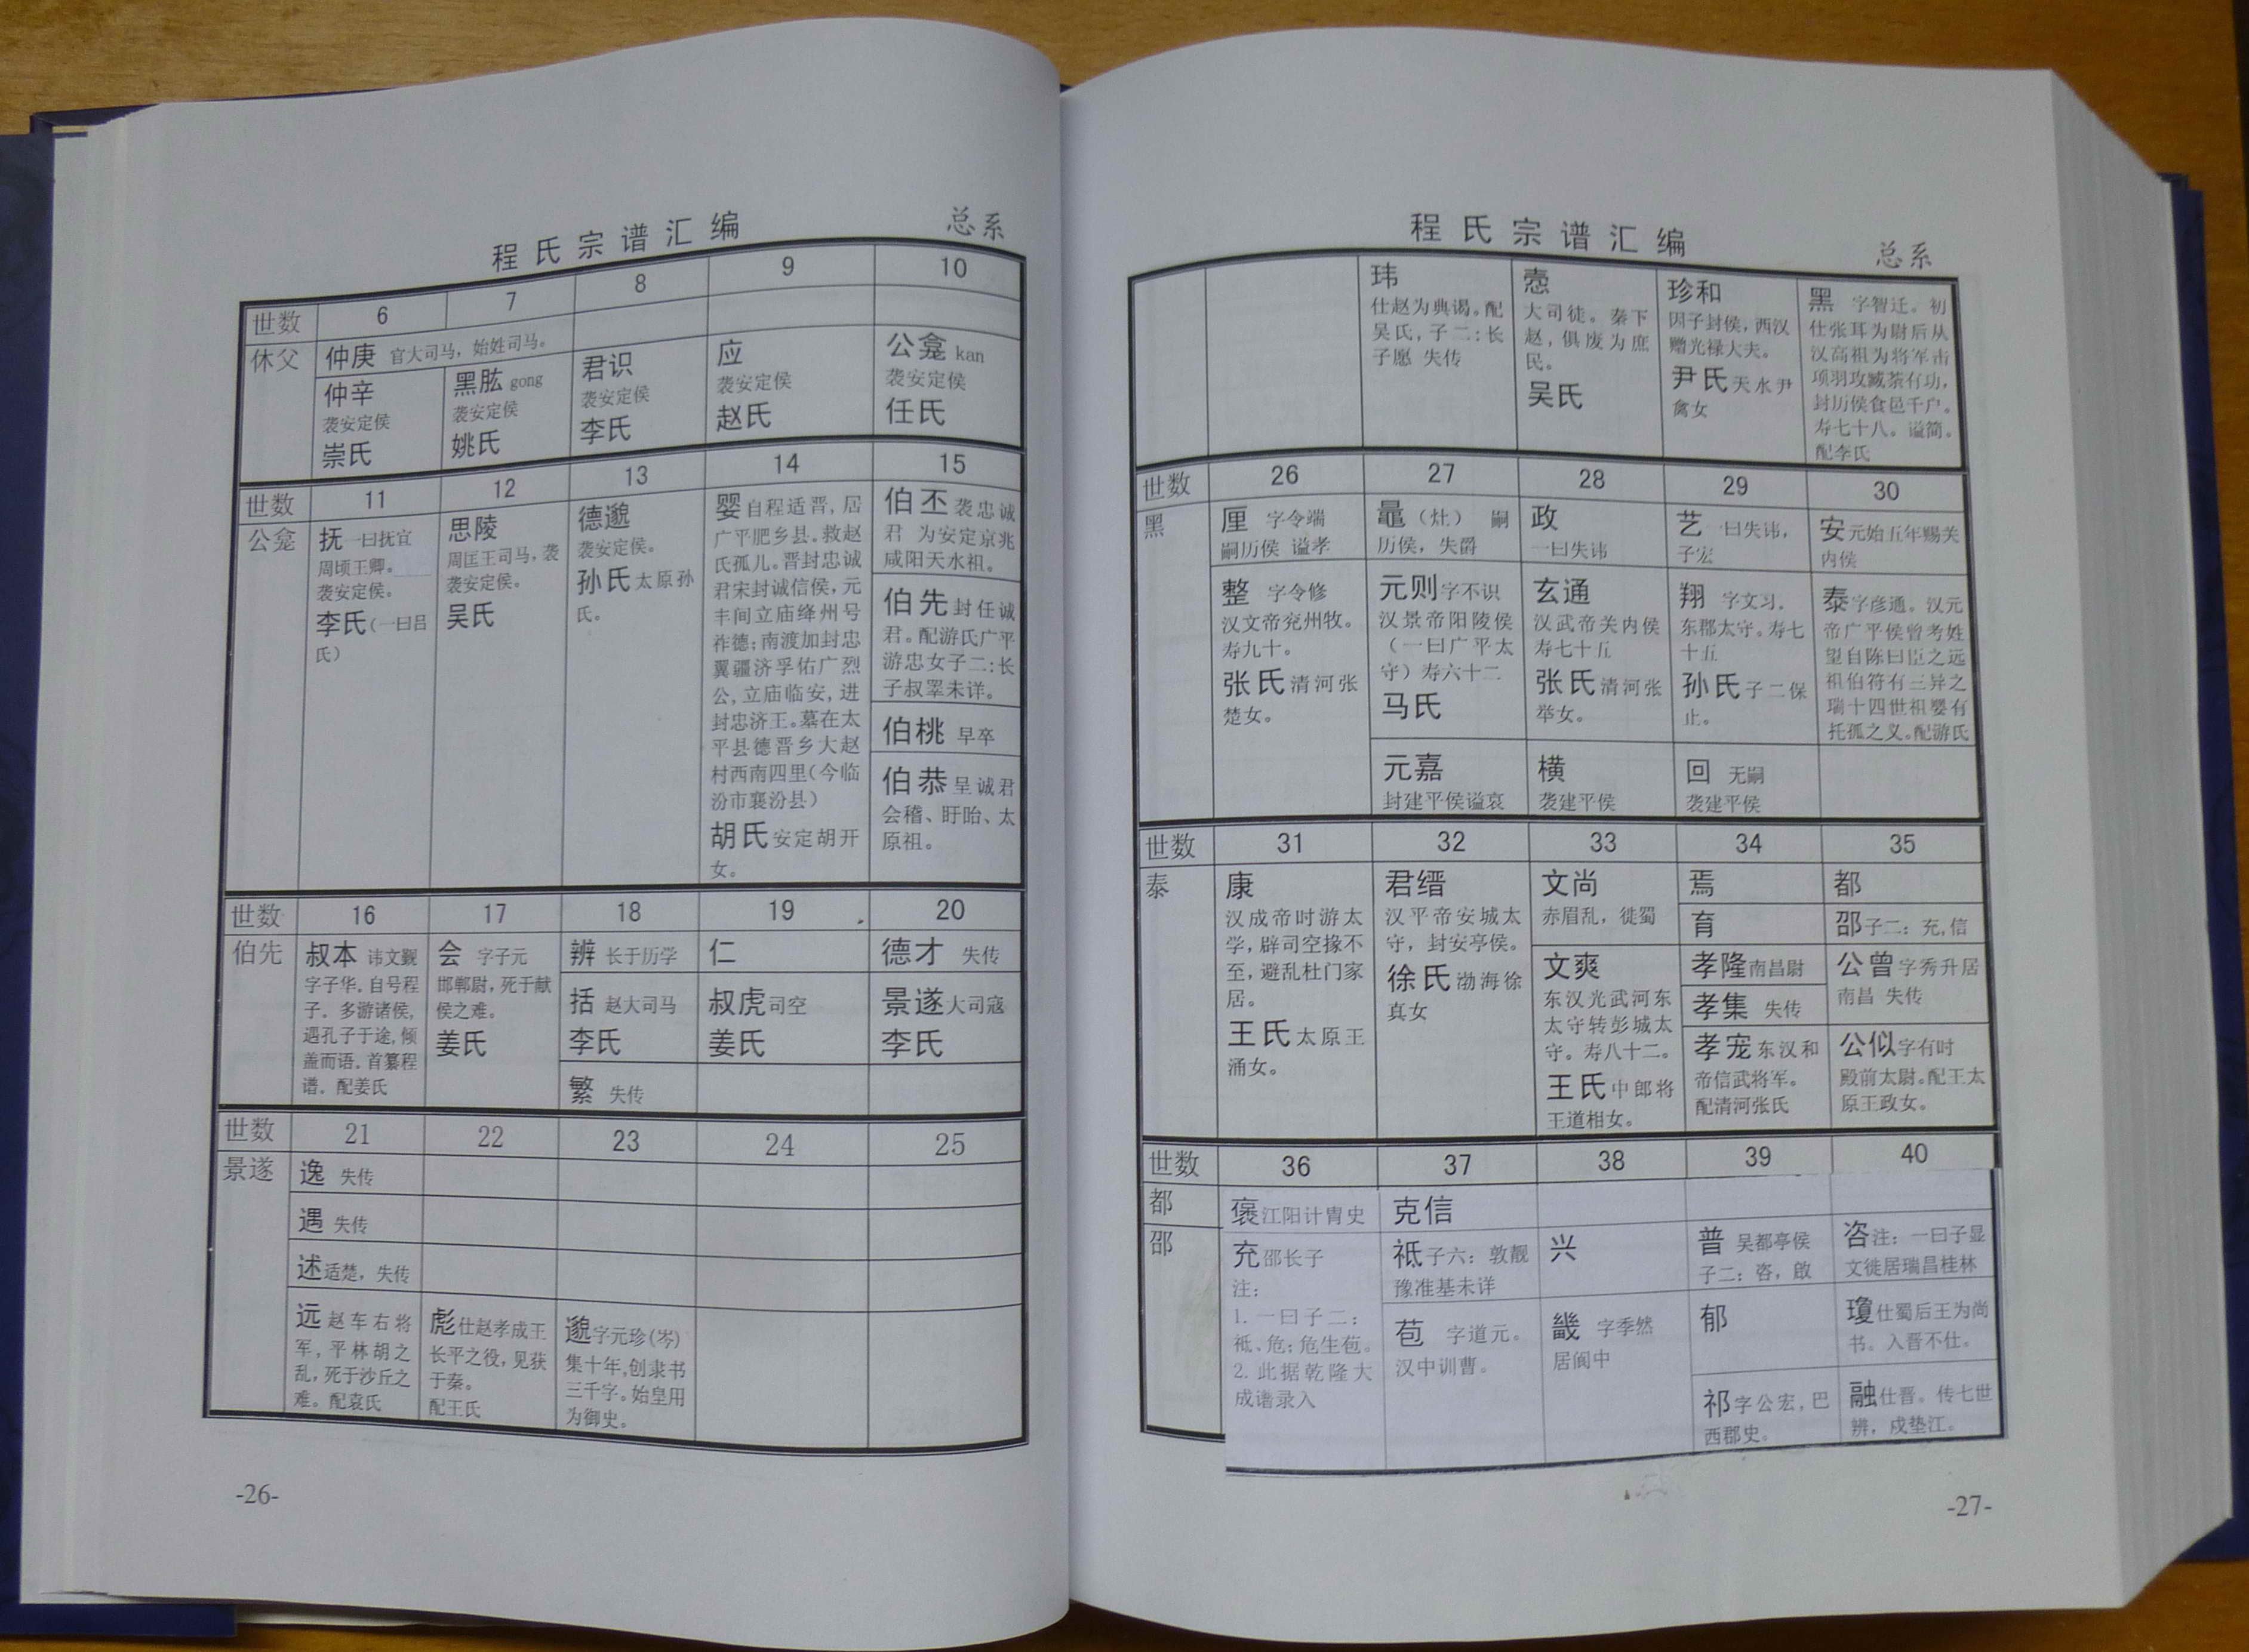 程氏宗谱汇编
总系
世数 6 7 8 9 10
休父
仲庚 官大司马，始姓司马。
仲辛
袭安定侯
崇氏
黑肱 gong
袭安定侯
姚氏
君识
袭安定侯
李氏
应
袭安定侯
赵氏
公龛 kan
袭安定侯
任氏
世数 11 12 13 14 15
公龛
抚 一曰抚宜
周顷王卿。
袭安定侯。
李氏（一曰吕
氏）
思陵
周匡王司马，袭
袭安定侯。
吴氏
德邈
袭安定侯。
孙氏 太原孙
氏。
婴 自程适晋，居
广平肥乡县。救赵
氏孤儿。晋封忠诚
君宋封诚信侯，元
丰间立庙绛州号
祚德；南渡加封忠
翼疆济孚佑广烈
公，立庙临安，进
封忠济王。墓在太
平县德晋乡大赵
村西南四里（今临
汾市襄汾县）
胡氏 安定胡开
女。
伯丕 袭忠诚
君 为安定京兆
咸阳天水祖。
伯先 封任诚
君。配游氏广平
游忠女子二：长
子叔罩未详。
伯桃 早卒
伯恭 呈诚君
会稽、盱眙、太
原祖。
世数 16 17 18 19 20
伯先
叔本 讳文觐
字子华，自号程
子．多游诸侯，
遇孔子于途，倾
盖而语．首纂程
谱．配姜氏
会 字子元
邯郸尉，死于献
侯之难。
姜氏
辨 长于历学
括 赵大司马
李氏
繁 失传
仁
叔虎 司空
姜氏
德才 失传
景遂 大司寇
李氏
世数 21 22 23 24 25
景遂
逸 失传
遇 失传
述 适楚，失传
远 赵车右将
军，平林胡之
乱，死于沙丘之
难。配袁氏
彪 仕赵孝成王
长平之役，见获
于秦。
配王氏
邈 字元珍（岑）
集十年，创隶书
三千字。始皇用
为御史。
-26-
程氏宗谱汇编
总系
玮
仕赵为典谒。配
吴氏，子二：长
子愿 失传
悫
大司徒。秦下
赵，俱废为庶
民。
吴氏
珍和
因子封侯，西汉
赠光禄大夫。
尹氏 天水尹
禽女
黑 字智迁。初
仕张耳为尉后从
汉高祖为将军击
项羽攻臧荼有功，
封历侯食邑千户。
寿七十八。谥简。
配李氏
世数 26 27 28 29 30
黑
厘 字令端
嗣历侯 谥孝
整 字令修
汉文帝兖州牧。
寿九十。
张氏 清河张
楚女。
鼌（灶） 嗣
历侯，失爵
元则 字不识
汉景帝阳陵侯
（一曰广平太
守）寿六十二
马氏
元嘉
封建平侯谥哀
政
一曰失讳
玄通
汉武帝关内侯
寿七十五
张氏 清河张
举女。
横
袭建平侯
艺 一曰失讳，
子宏
翔 字文习．
东郡太守。寿七
十五
孙氏 子二保
止。
回 无嗣
袭建平侯
安 元始五年赐关
内侯
泰 字彦通。汉元
帝广平侯曾考姓
望自陈曰臣之远
祖伯符有三异之
瑞十四世祖婴有
托孤之义。配游氏
世数 31 32 33 34 35
泰
康
汉成帝时游太
学，辟司空掾不
至，避乱杜门家
居。
王氏 太原王
涌女。
君缙
汉平帝安城太
守，封安亭侯。
徐氏 渤海徐
真女
文尚
赤眉乱，徙蜀
文爽
东汉光武河东
太守转彭城太
守。寿八十二。
王氏 中郎将
王道相女。
焉
育
孝隆 南昌尉
孝集 失传
孝宠 东汉和
帝信武将军。
配清河张氏
都
邵 子二：充，信
公曾 字秀升居
南昌 失传
公似 字有时
殿前太尉。配王太
原王政女。
世数 36 37 38 39 40
都
邵
褒 江阳计胄史
充 邵长子
注：
1. 一曰子二：
祗、危；危生苞。
2. 此据乾隆大
成谱录入
克信
祗 子六：敦靓
豫准基未详
苞 字道元。
汉中训曹。
兴
畿 字季然
居阆中
普 吴都亭侯
子二：咨，啟
郁
祁 字公宏，巴
西郡史。
咨 注：一曰子显
文徙居瑞昌桂林
瓊 仕蜀后王为尚
书。入晋不仕。
融 仕晋。传七世
辨，戍垫江。
-27-